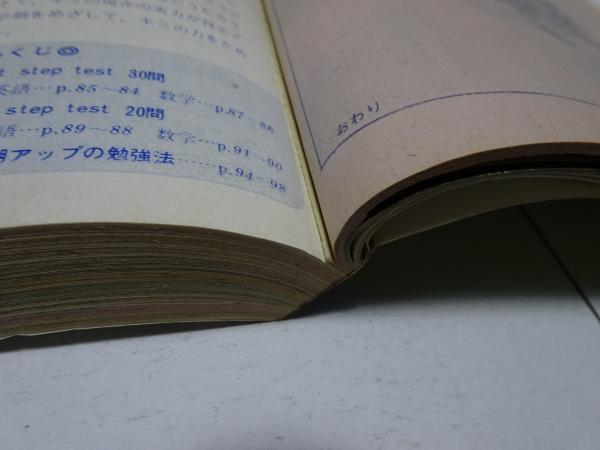 キミの力をため
くじ◎
step test 30問
英語…p.85～84 数学…p.87～86
step test 20問
語…p.89～88 数学…p.91～90
期アップの勉強法……p.94～98
おわり